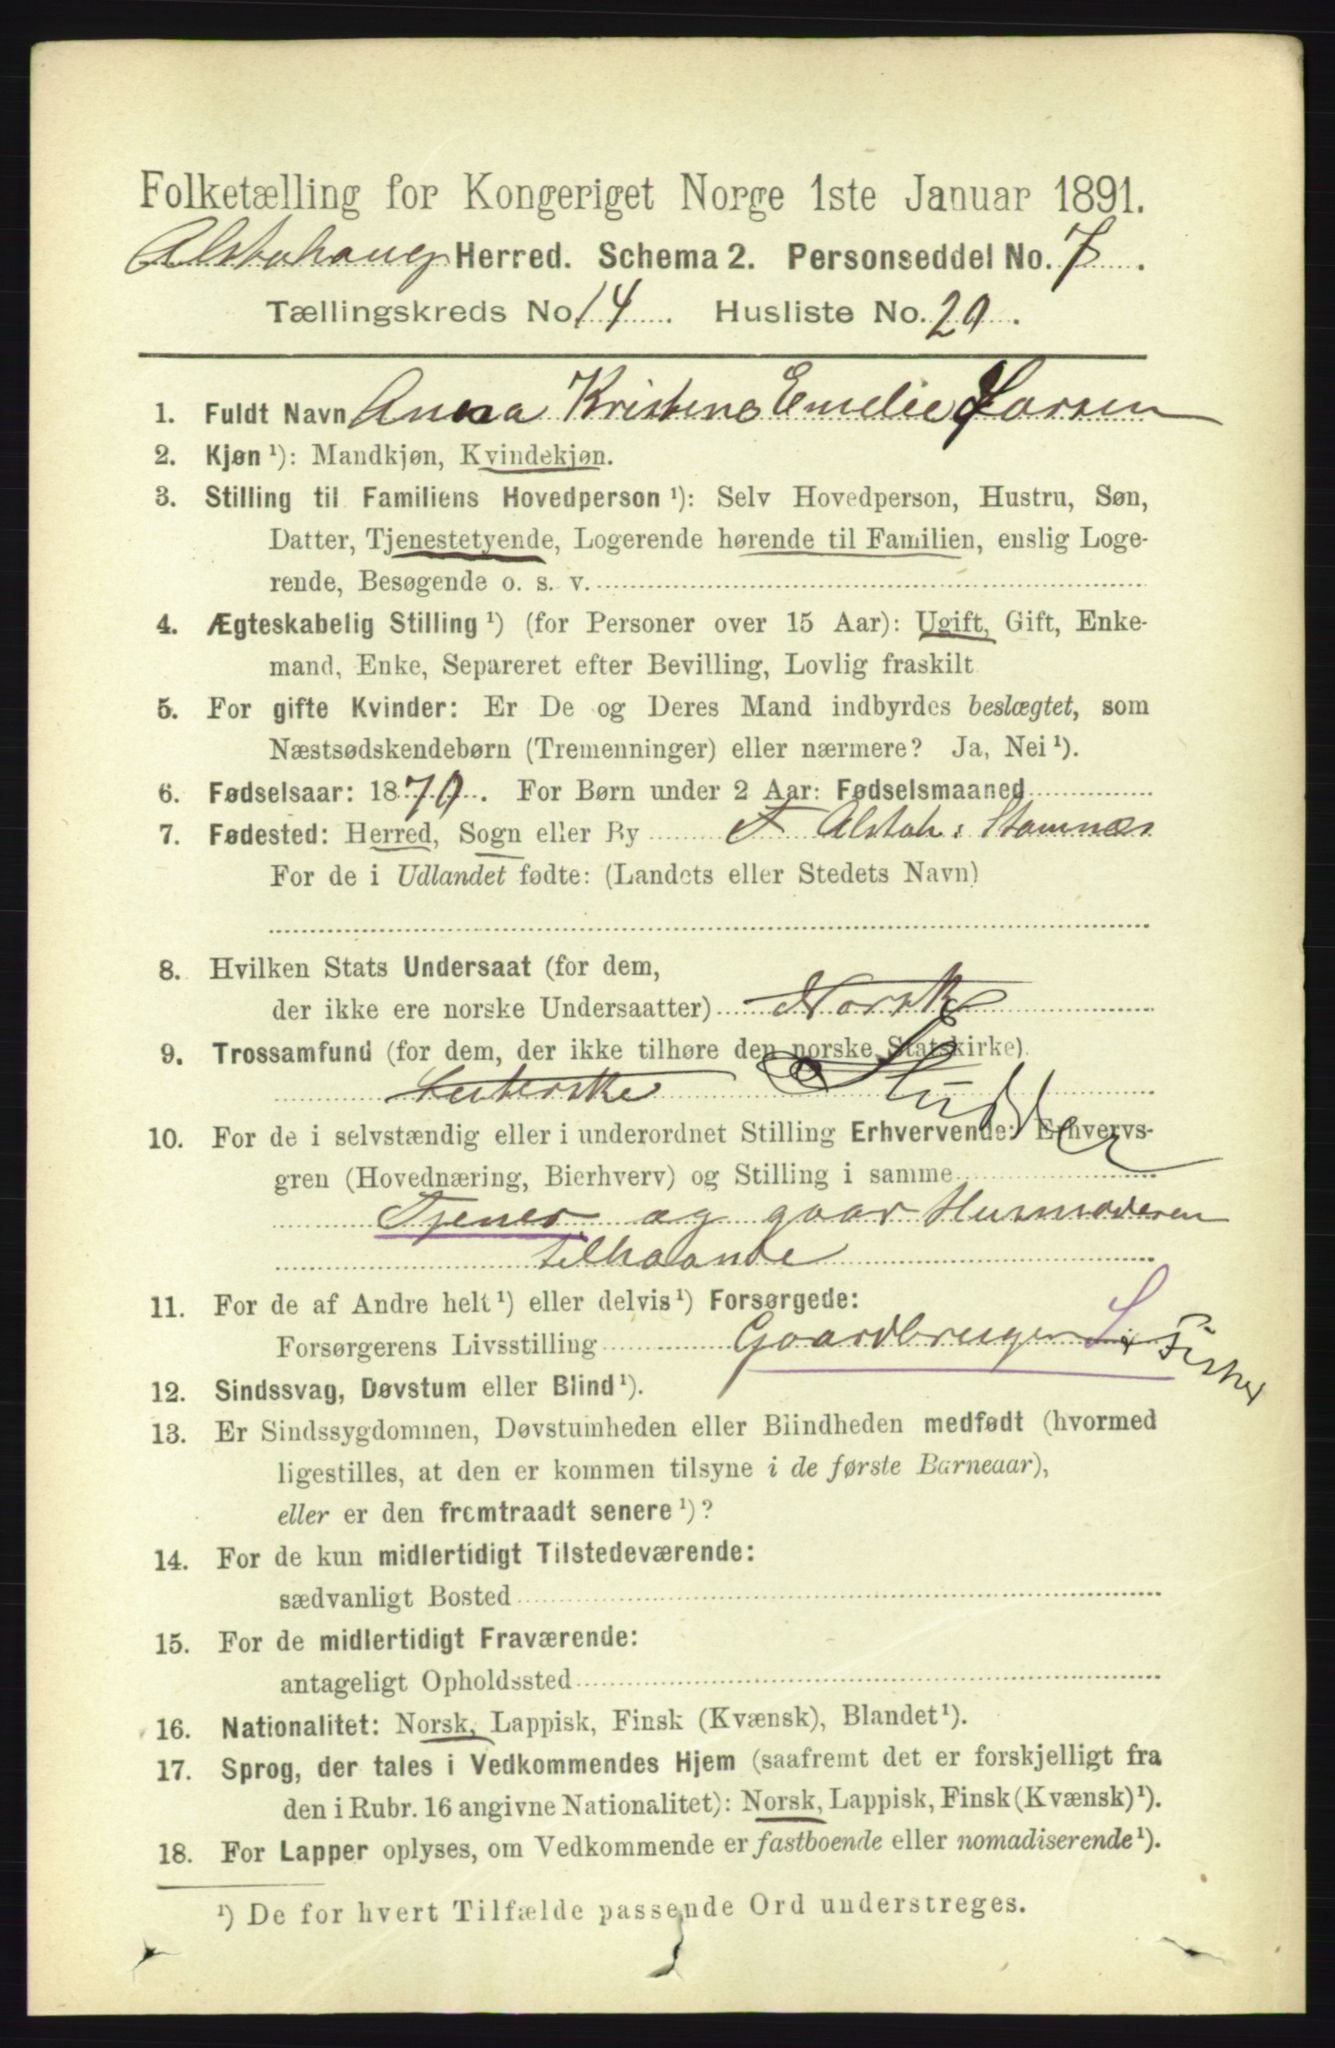 Folketælling for Kongeriget Norge 1ste Januar 1891.
Alstahaug Herred. Schema 2. Personseddel No. 7.
Tællingskreds No. 14. Husliste No. 20.
1. Fuldt Navn Anna Kristene Emelie Larsen
2. Kjøn ¹): Mandkjøn, Kvindekjøn.
3. Stilling til Familiens Hovedperson ¹): Selv Hovedperson, Hustru, Søn,
Datter, Tjenestetyende, Logerende hørende til Familien, enslig Loge-
rende, Besøgende o. s. v.
4. Ægteskabelig Stilling ¹) (for Personer over 15 Aar): Ugift, Gift, Enke-
mand, Enke, Separeret efter Bevilling, Lovlig fraskilt
5. For gifte Kvinder: Er De og Deres Mand indbyrdes beslægtet, som
Næstsødskendebørn (Tremenninger) eller nærmere? Ja, Nei ¹).
6. Fødselsaar: 1870. For Børn under 2 Aar: Fødselsmaaned
7. Fødested: Herred, Sogn eller By T Alstah: Stamnæs
For de i Udlandet fødte: (Landets eller Stedets Navn)
8. Hvilken Stats Undersaat (for dem,
der ikke ere norske Undersaatter) Norsk
9. Trossamfund (for dem, der ikke tilhøre den norske Statskirke).
Luterske
10. For de i selvstændig eller i underordnet Stilling Erhvervende: Erhvervs-
gren (Hovednæring, Bierhverv) og Stilling i samme
Tjener og gaar Husmoderen
tilhaande
11. For de af Andre helt ¹) eller delvis ¹) Forsørgede:
Forsørgerens Livsstilling Gaardbruger L Fisker
12. Sindssvag, Døvstum eller Blind ¹).
13. Er Sindssygdommen, Døvstumheden eller Blindheden medfødt (hvormed
ligestilles, at den er kommen tilsyne i de første Barneaar),
eller er den fremtraadt senere ¹)?
14. For de kun midlertidigt Tilstedeværende:
sædvanligt Bosted
15. For de midlertidigt Fraværende:
antageligt Opholdssted
16. Nationalitet: Norsk, Lappisk, Finsk (Kvænsk), Blandet ¹).
17. Sprog, der tales i Vedkommendes Hjem (saafremt det er forskjelligt fra
den i Rubr. 16 angivne Nationalitet): Norsk, Lappisk, Finsk (Kvænsk) ¹).
18. For Lapper oplyses, om Vedkommende er fastboende eller nomadiserende ¹).
¹) De for hvert Tilfælde passende Ord understreges.